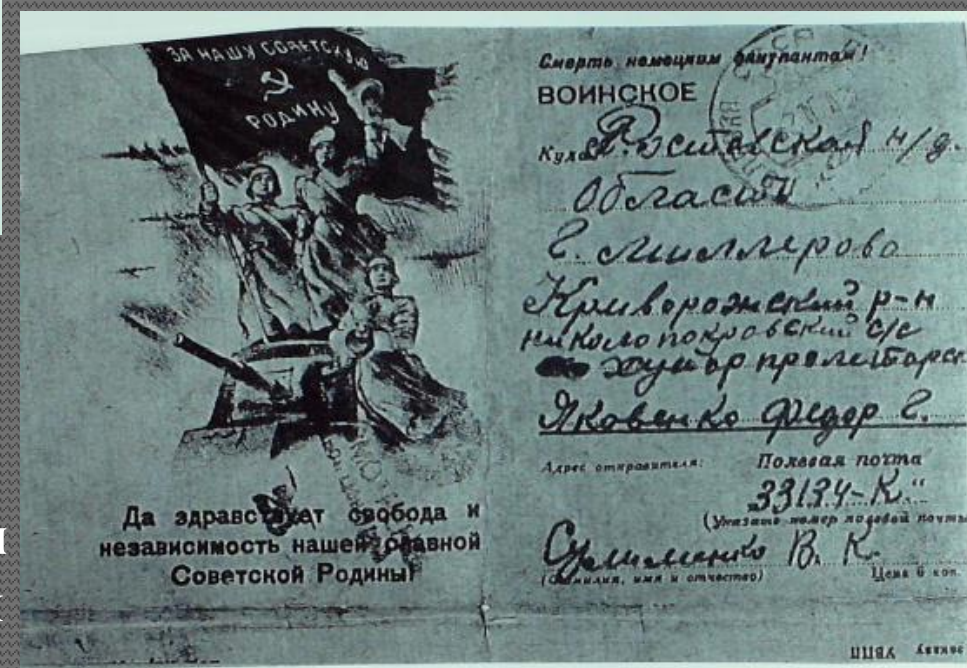 ЗА НАШУ СОВЕТСКУЮ
РОДИНУ
Да здравствует свобода и
независимость нашей славной
Советской Родины!
Смерть немецким оккупантам!
ВОИНСКОЕ
Куда Ростовская н/д.
Область
г. Миллерово
Криворожский р-н
николопокровский с/с
хутор пролитарск
Яковенко Федор С.
Адрес отправителя: Полевая почта
„33134-К."
(Укажите номер полевой почты
В. К.
(Фамилия, имя и отчество) Цена 6 коп.
УВПП